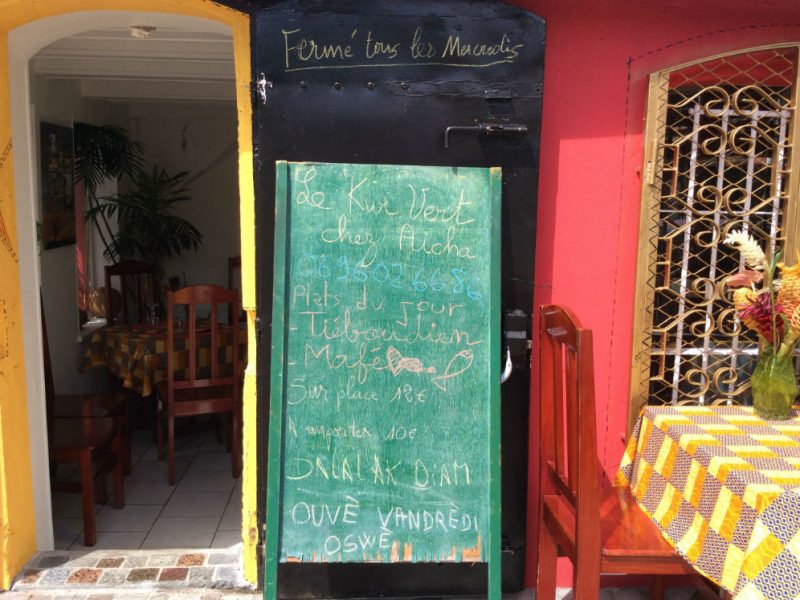 Fermé tous les Mercredis
Le Kiwi Vert
chez Aicha
0696026686
Plats du jour
- Tiéboudien
- Mafé
Sur place 12€
A emporter 10€
DALALAK DiAM
OUVÈ VANDRÈDI
OSWÈ